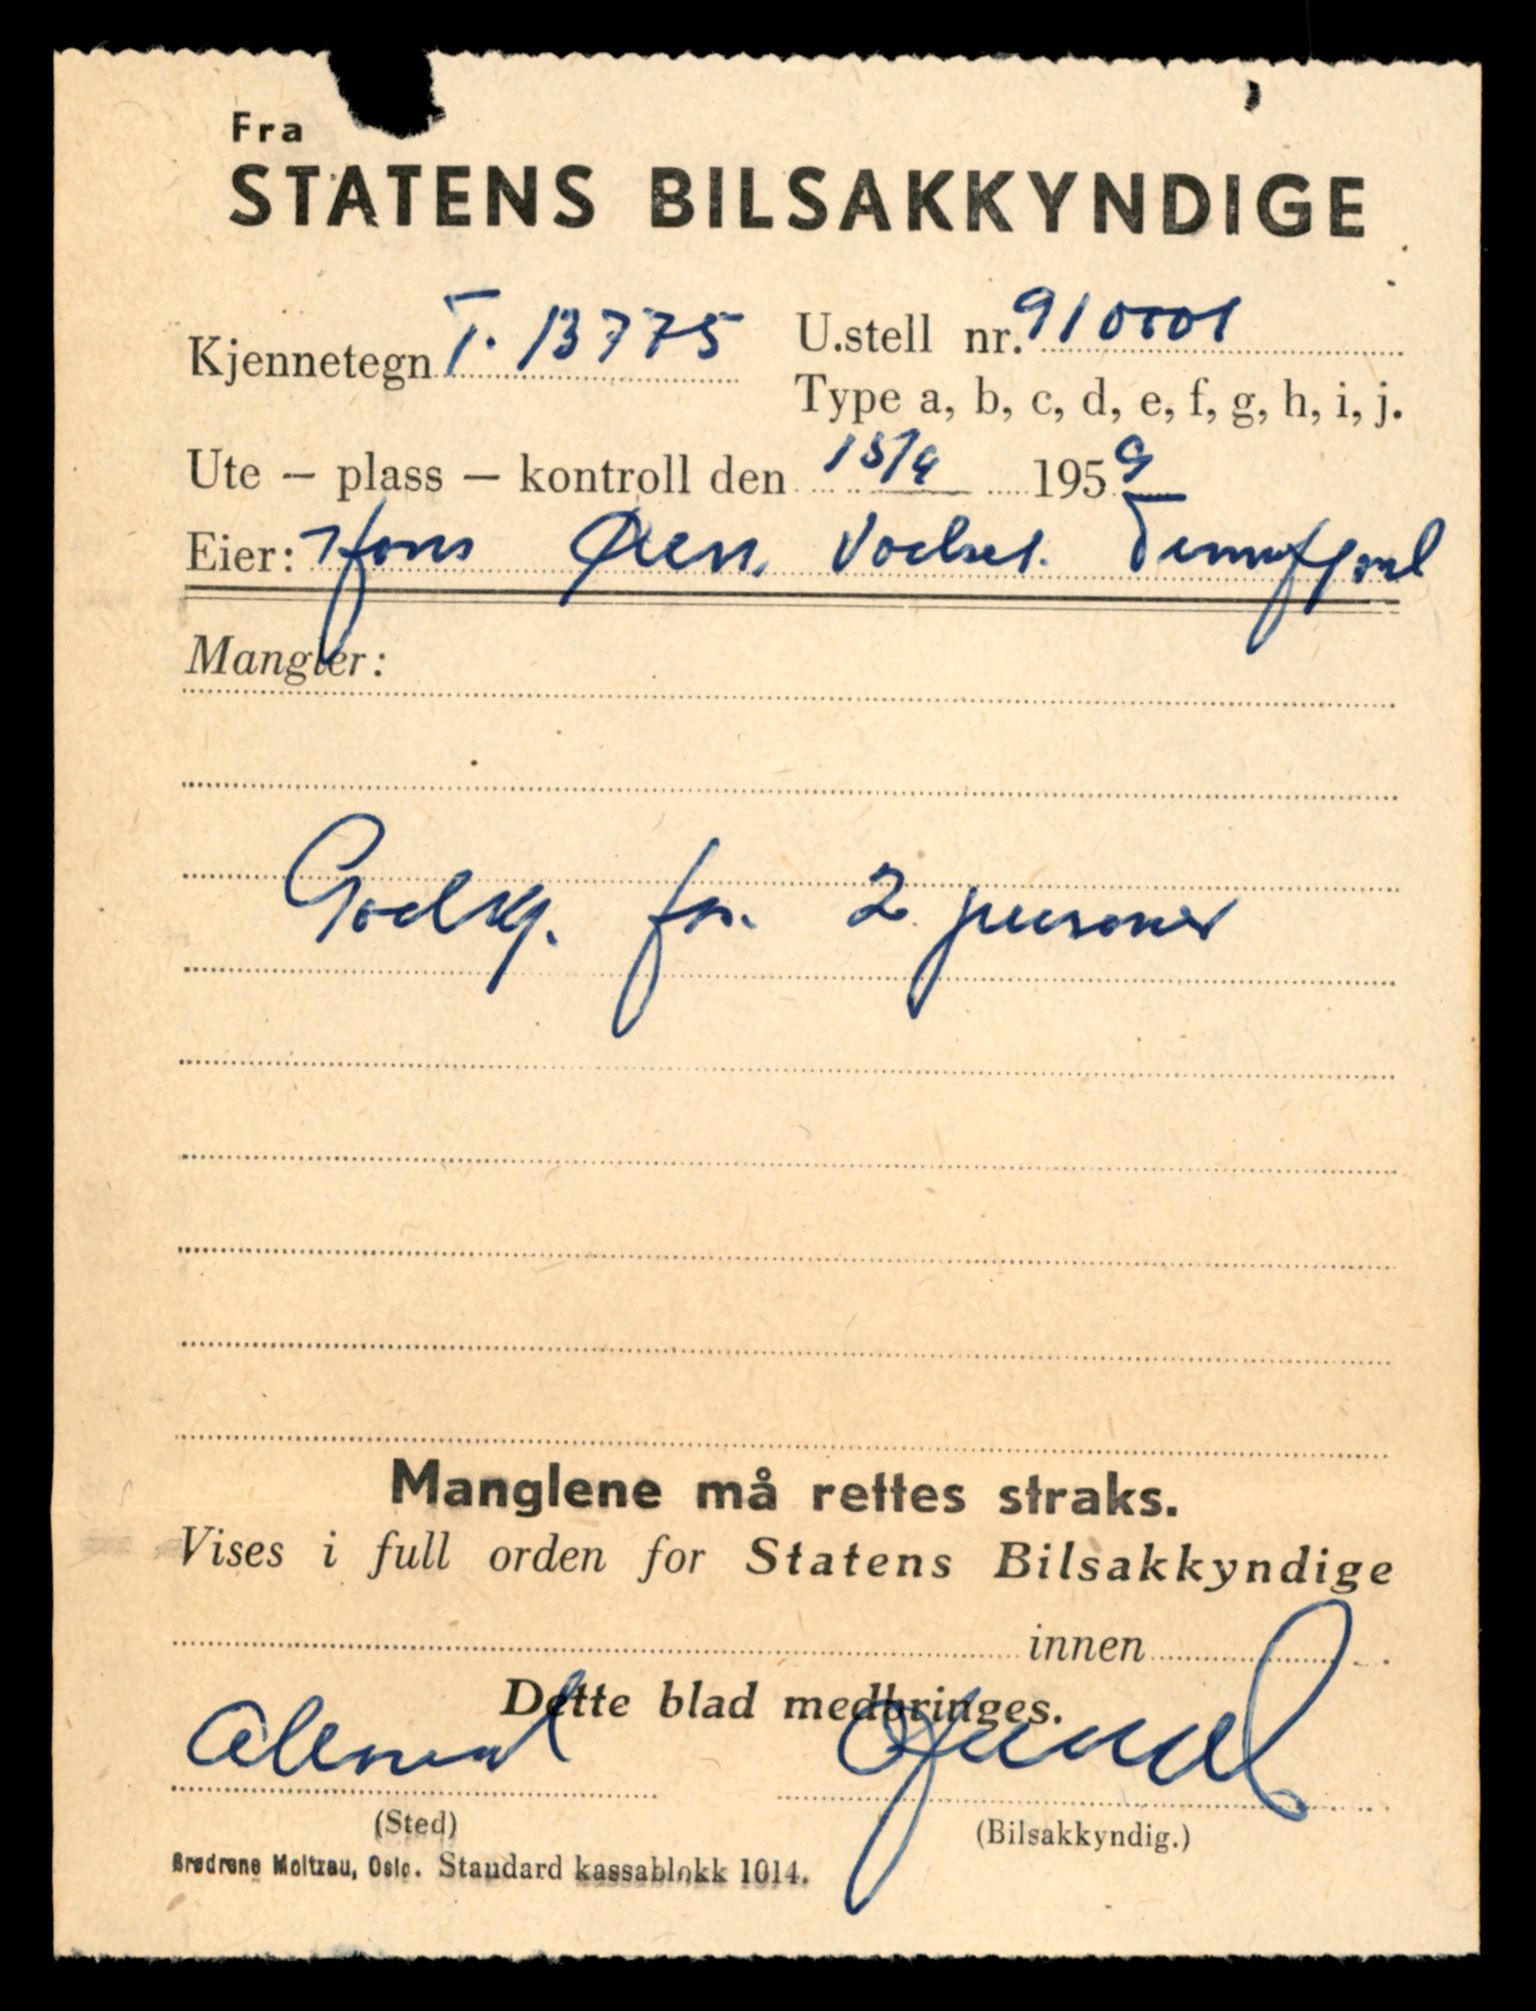 Fra
STATENS BILSAKKYNDIGE
Kjennetegn T. 13775 U.stell nr. 910001
Type a, b, c, d, e, f, g, h, i, j.
Ute – plass – kontroll den 15/9 1959
Eier:
Mangler:
Godkj. for 2 personer
Manglene må rettes straks.
Vises i full orden for Statens Bilsakkyndige
innen
Dette blad medbringes.
(Sted) (Bilsakkyndig.)
Brødrene Moltzau, Oslo. Standard kassablokk 1014.